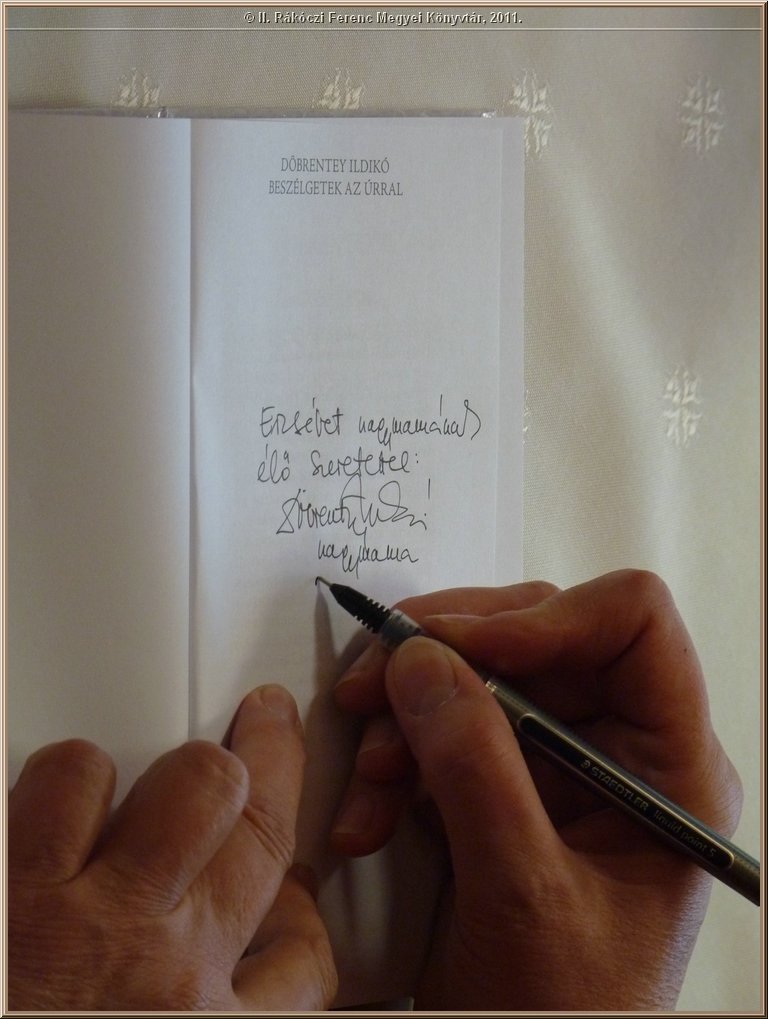 © II. Rákóczi Ferenc Megyei Könyvtár, 2011.
DÖBRENTEY ILDIKÓ
BESZÉLGETEK AZ ÚRRAL
Erzsébet nagymamának
élő szeretettel:
Döbrentey Ildikó
nagymama
STAEDTLER liquid point 5